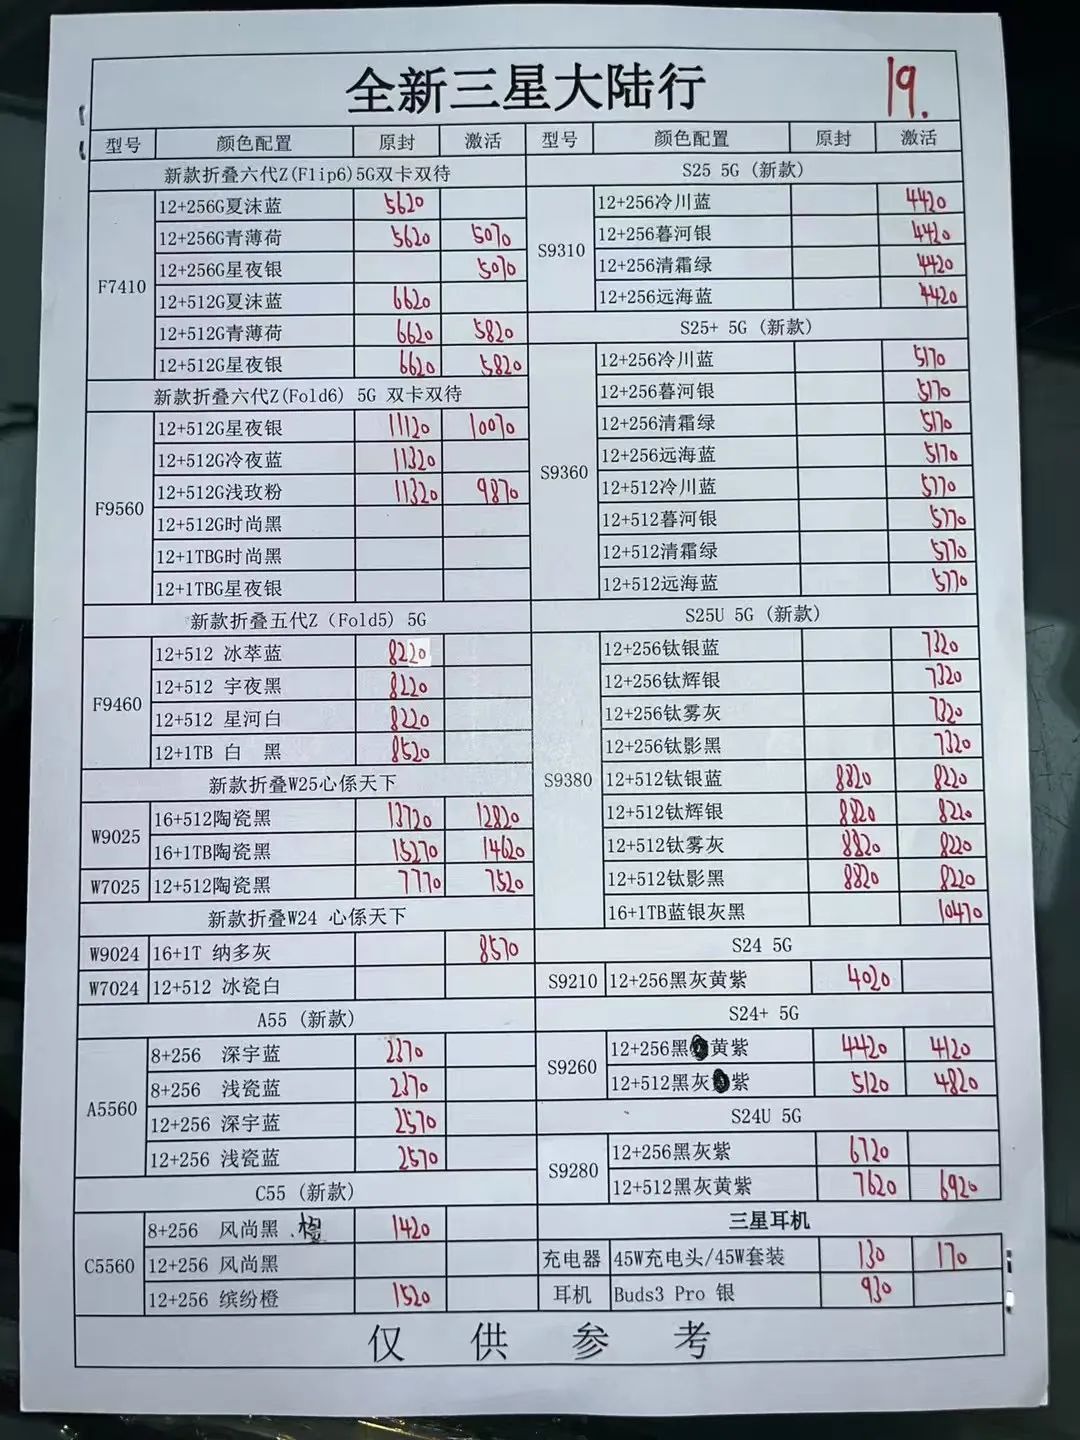 全新三星大陆行
19.
型号 颜色配置 原封 激活
新款折叠六代Z(Flip6)5G双卡双待
F7410
12+256G夏沫蓝 5620
12+256G青薄荷 5620 5070
12+256G星夜银 5070
12+512G夏沫蓝 6620
12+512G青薄荷 6620 5820
12+512G星夜银 6620 5820
新款折叠六代Z(Fold6) 5G 双卡双待
F9560
12+512G星夜银 11120 10070
12+512G冷夜蓝 11320
12+512G浅玫粉 11320 9870
12+512G时尚黑
12+1TBG时尚黑
12+1TBG星夜银
新款折叠五代Z(Fold5) 5G
F9460
12+512 冰萃蓝 8220
12+512 宇夜黑 8220
12+512 星河白 8220
12+1TB 白 黑 8520
新款折叠W25心係天下
W9025
16+512陶瓷黑 13720 12820
16+1TB陶瓷黑 15270 14620
W7025 12+512陶瓷黑 7770 7520
新款折叠W24 心係天下
W9024 16+1T 纳多灰 8570
W7024 12+512 冰瓷白
A55 (新款)
A5560
8+256 深宇蓝 2370
8+256 浅瓷蓝 2370
12+256 深宇蓝 2570
12+256 浅瓷蓝 2570
C55 (新款)
C5560
8+256 风尚黑、橙 1420
12+256 风尚黑
12+256 缤纷橙 1520
型号 颜色配置 原封 激活
S25 5G (新款)
S9310
12+256冷川蓝 4420
12+256暮河银 4420
12+256清霜绿 4420
12+256远海蓝 4420
S25+ 5G (新款)
S9360
12+256冷川蓝 5170
12+256暮河银 5170
12+256清霜绿 5170
12+256远海蓝 5170
12+512冷川蓝 5770
12+512暮河银 5770
12+512清霜绿 5770
12+512远海蓝 5770
S25U 5G (新款)
S9380
12+256钛银蓝 7320
12+256钛辉银 7320
12+256钛雾灰 7320
12+256钛影黑 7320
12+512钛银蓝 8820 8220
12+512钛辉银 8820 8220
12+512钛雾灰 8820 8220
12+512钛影黑 8820 8220
16+1TB蓝银灰黑 10470
S24 5G
S9210 12+256黑灰黄紫 4020
S24+ 5G
S9260
12+256黑黄紫 4420 4120
12+512黑灰紫 5120 4820
S24U 5G
S9280
12+256黑灰紫 6720
12+512黑灰黄紫 7620 6920
三星耳机
充电器 45W充电头/45W套装 130 170
耳机 Buds3 Pro 银 930
仅供参考